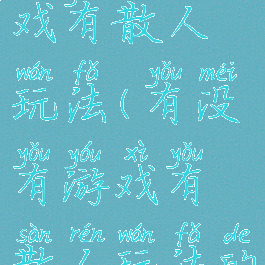 戏有散人
wán fǎ yǒu méi
玩法(有没
yǒu yóu xì yǒu
有游戏有
sàn rén wán fǎ de
散人玩法的